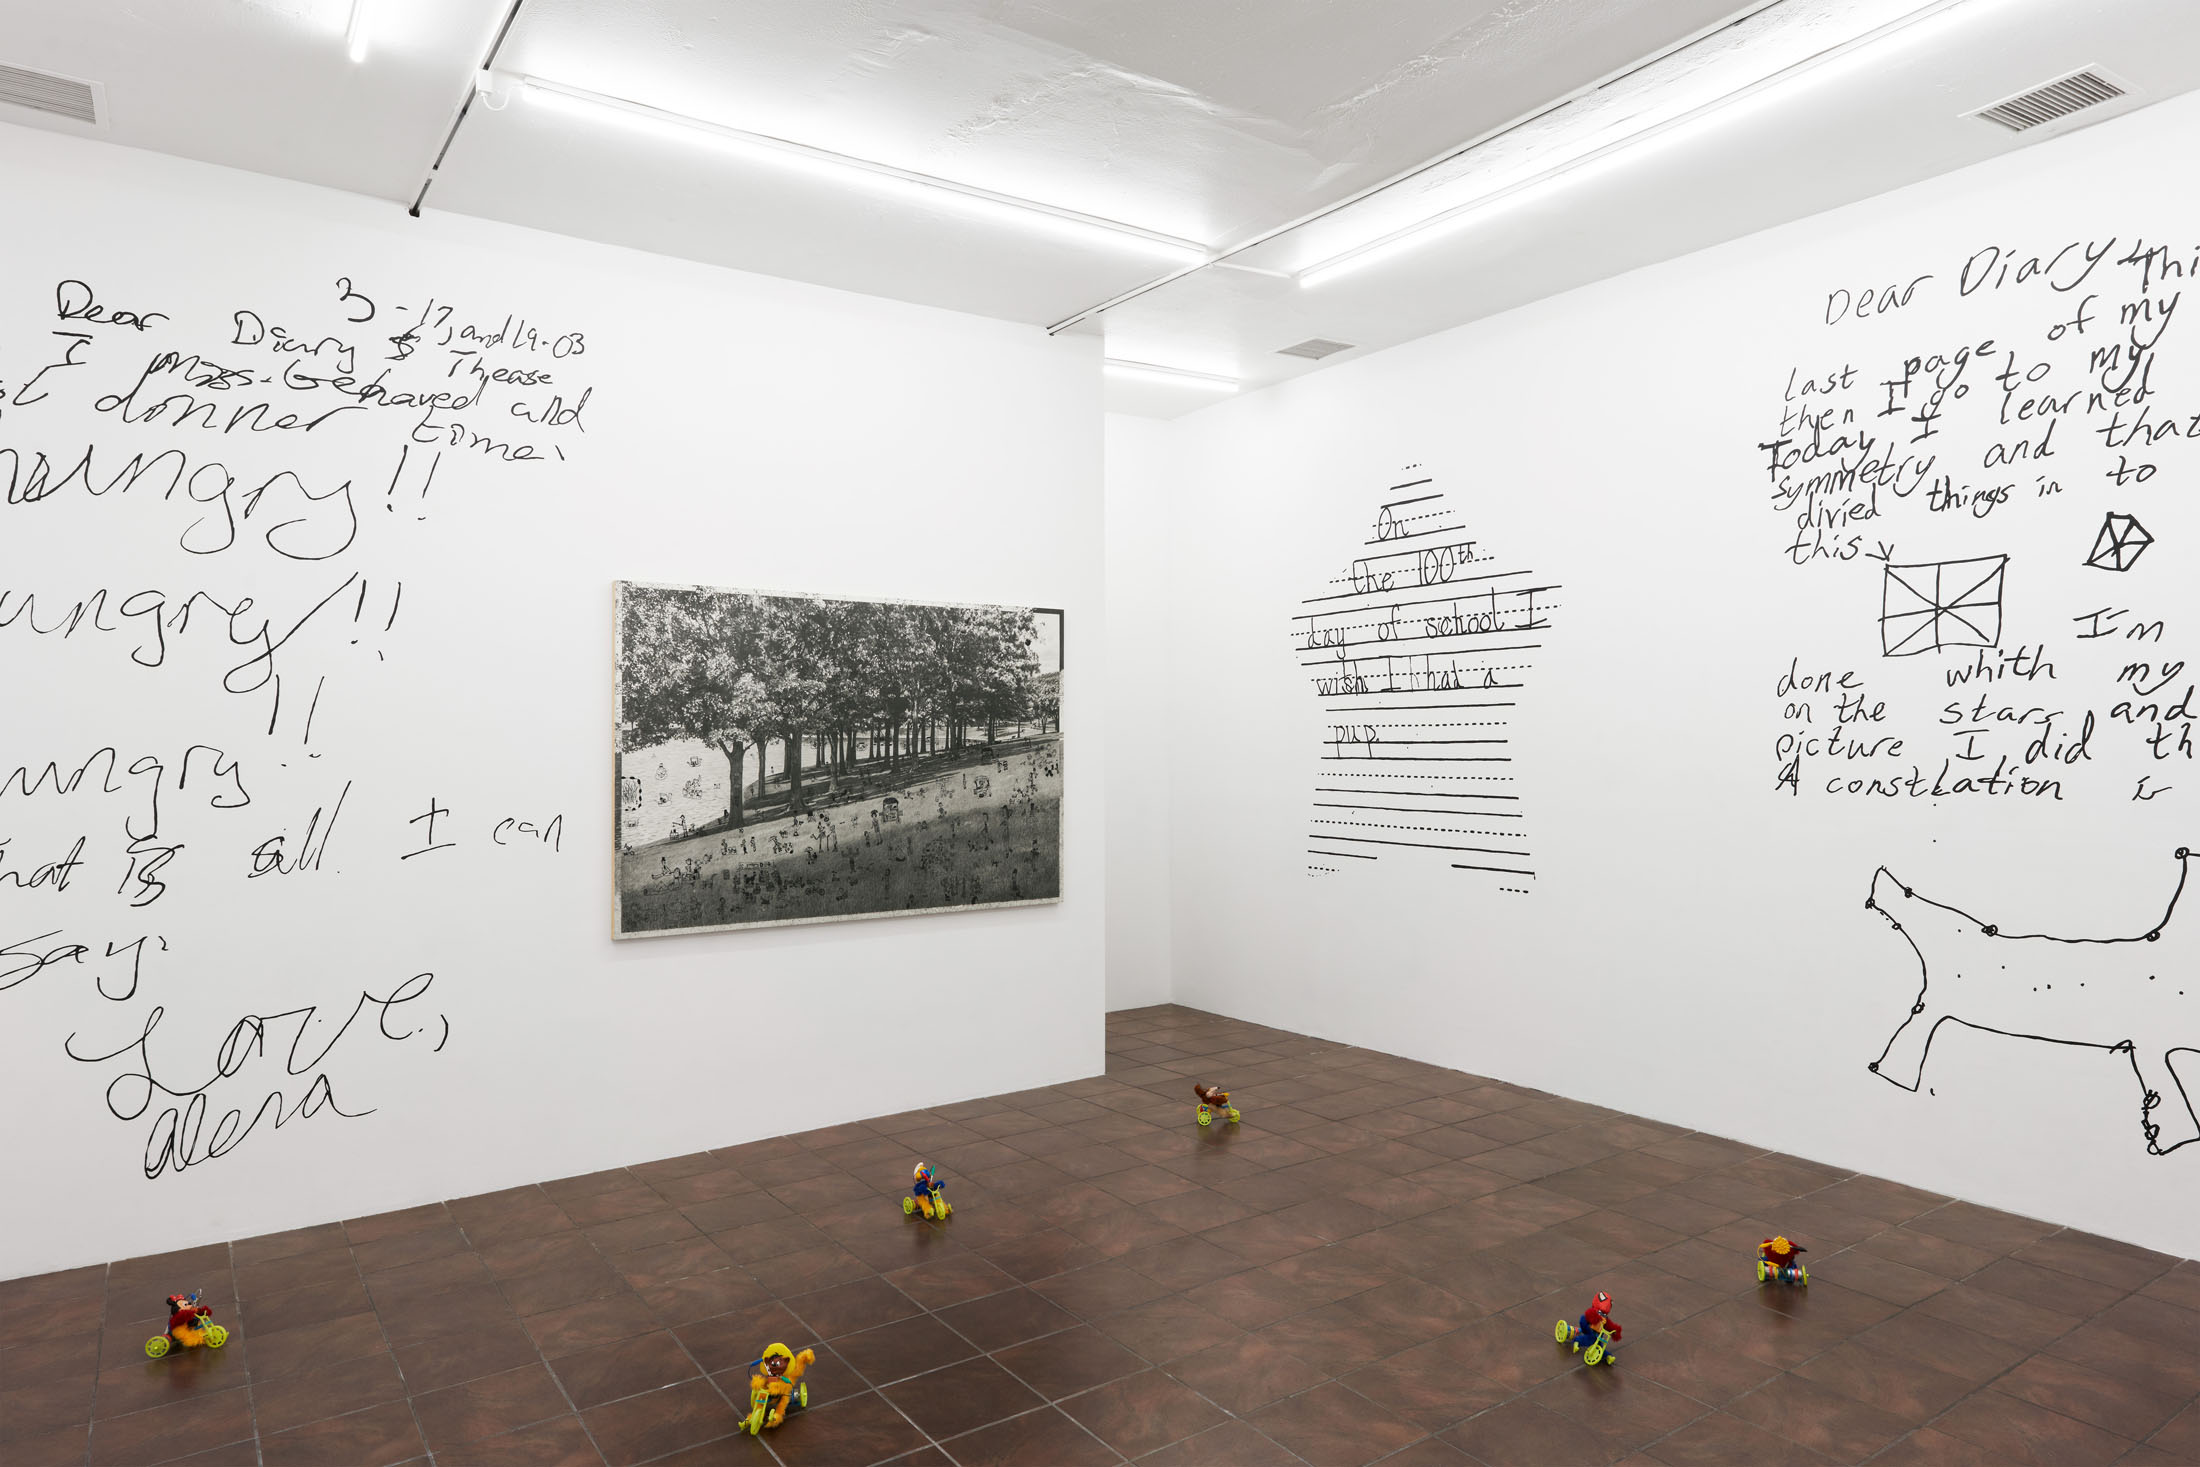 3-17, and 19-03
Dear Diary
I
and
donner time.
hungry!!
ungrey!!
!!
ungry
hat is all I can
say:
Love,
alexa
On
the 100th
day of school I
wish I had a
pup.
Dear Diary thi
last page of my
then I go to my
Today I learned
symmetry and that
divied things in to
this
I'm
done whith my
on the stars and
picture I did th
A constlation is